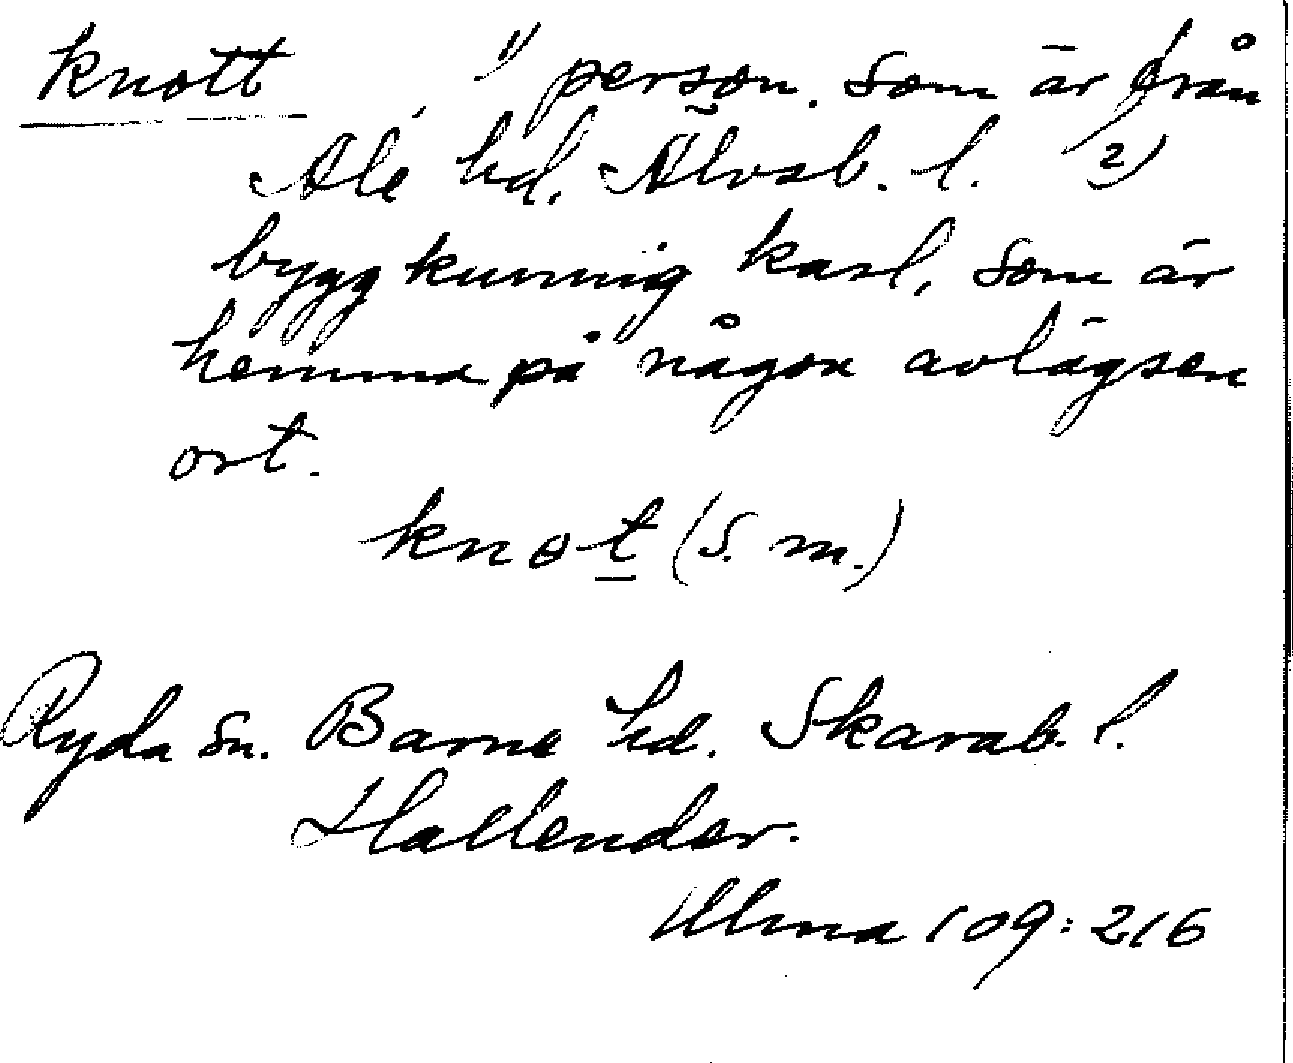 knott 1) person, som är från
Ale hd. Älvsb. l. 2)
byggkunnig karl, som är
hemma på någon avlägsen
ort.
knot (s. m.)
Ryda sn. Barne hd. Skarab. l.
Hallender.
Ulma 109:216